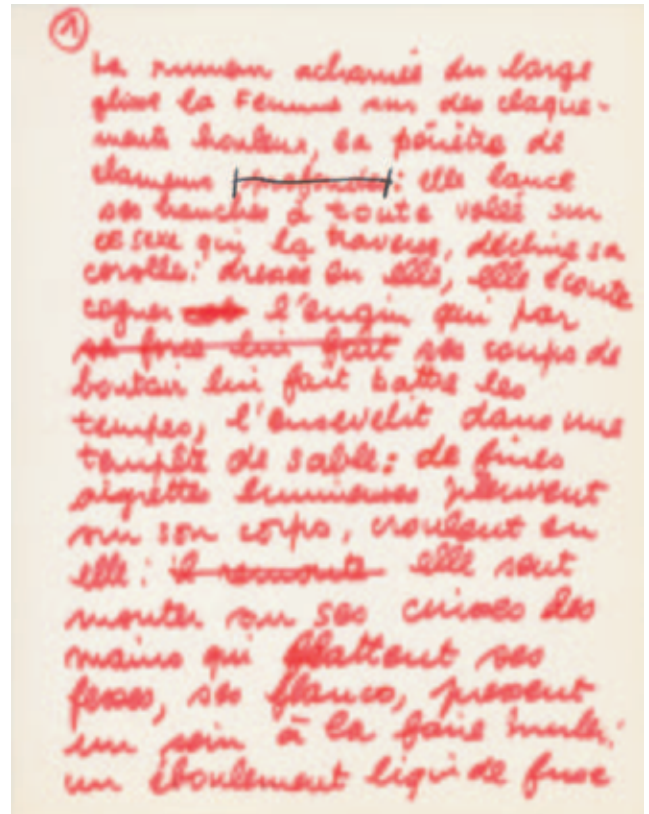 ①
La rumeur acharnée du large
glisse la Femme sur des claque-
ments houleux, la pénètre de
clameurs : elle lance
ses hanches à toute volée sur
ce sexe qui la traverse, déchire sa
corolle : dressé en elle, elle écoute
cogner l'engin qui par
sa force lui fait ses coups de
boutoir lui fait battre les
tempes, l'ensevelit dans une
tempête de sable : de fines
aigrettes lumineuses pleuvent
sur son corps, croulent en
elle : il remonte elle sent
monter sur ses cuisses des
mains qui flattent ses
fesses, ses flancs, pressent
un sein à la faire hurler :
un éboulement liquide fuse